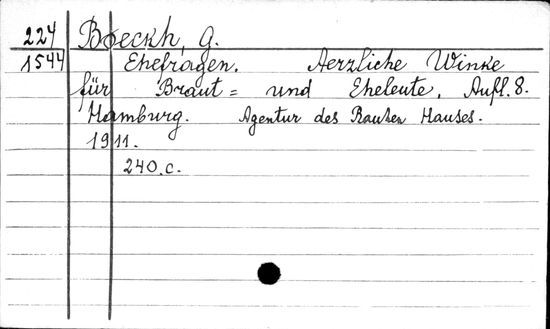 224 Boeckh, G.
1544 Ehefragen. Aerzliche Winke
für Braut= und Eheleute, Aufl. 8.
Hamburg. Agentur des Rauhen Hauses.
1911.
240.c.